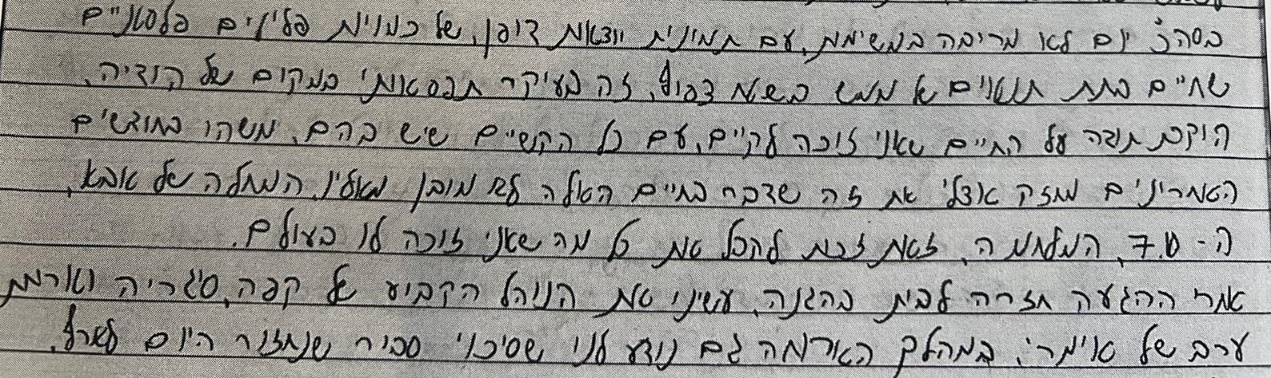 בסה״כ יום לא מריבה במשימות, עם תמונות יוצאות דופן, של כמויות פליטים פלסטינים
שחיים תחת תנאים לא ממש בשמאל דבוק, זה בעיקר תבסאותי במקום של הודיה,
הוקרת תודה על החיים שאני זוכה לקיים, עם כל הקשיים שיש בהם, משהו בחודשים
האחרונים מחזק אצלי את זה שדבר בחיים האלה לא מובן מאליו. המחלה של אבא,
ה-7.10, המלחמה, זאת זכות להכל את כל מה שאני זוכה לו בעולם.
אחרי ההגעה חזרה לבית בהגנה, עשינו את הנוהל הקבוע של קפה, סיגריה וארוחת
ערב של אימרי. במהלך הארוחה גם נודע לנו שסיכוי סביר שנחזור היום לארץ.